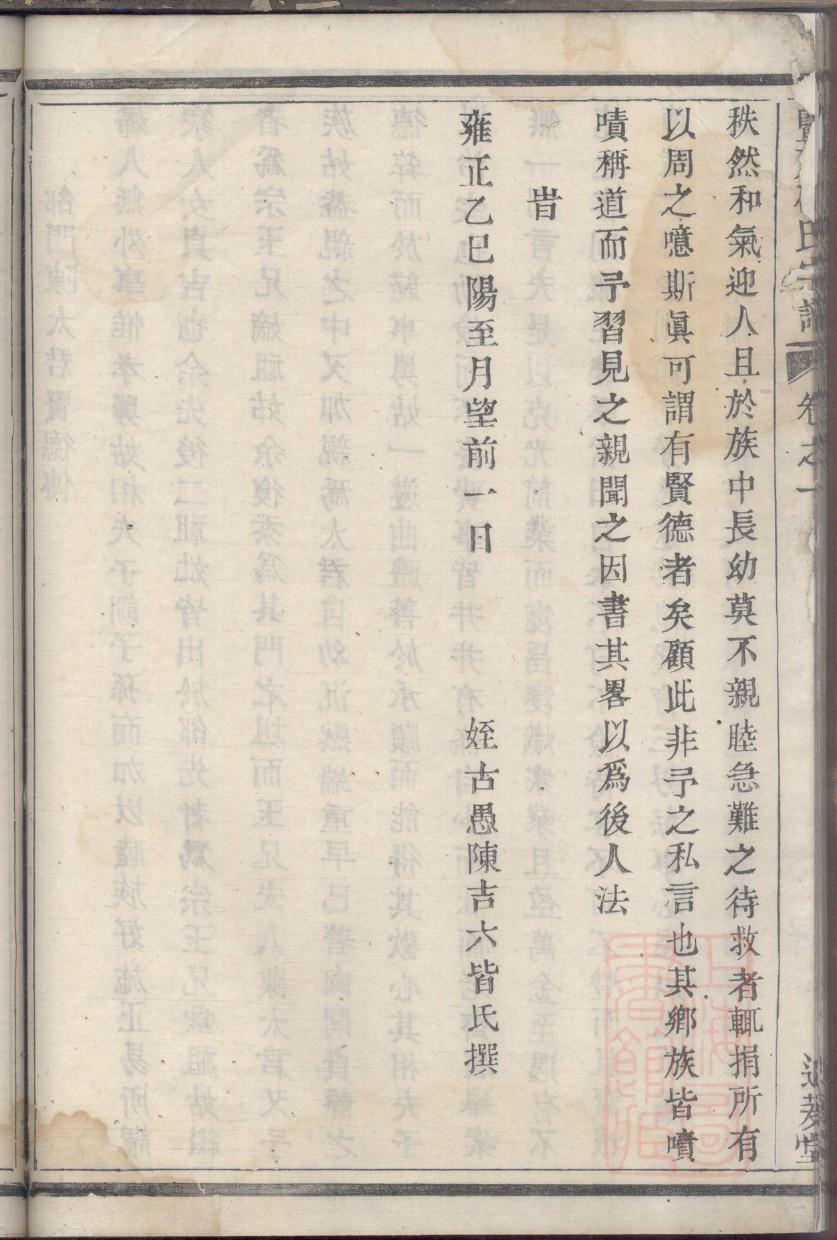 氏宗譜 卷之一
秩然和氣迎人且於族中長幼莫不親睦急難之待救者輒捐所有
以周之噫斯眞可謂有賢德者矣顧此非予之私言也其鄉族皆嘖
嘖稱道而予習見之親聞之因書其畧以爲後人法
旹
雍正乙巳陽至月望前一日 姪古愚陳吉六皆氏撰